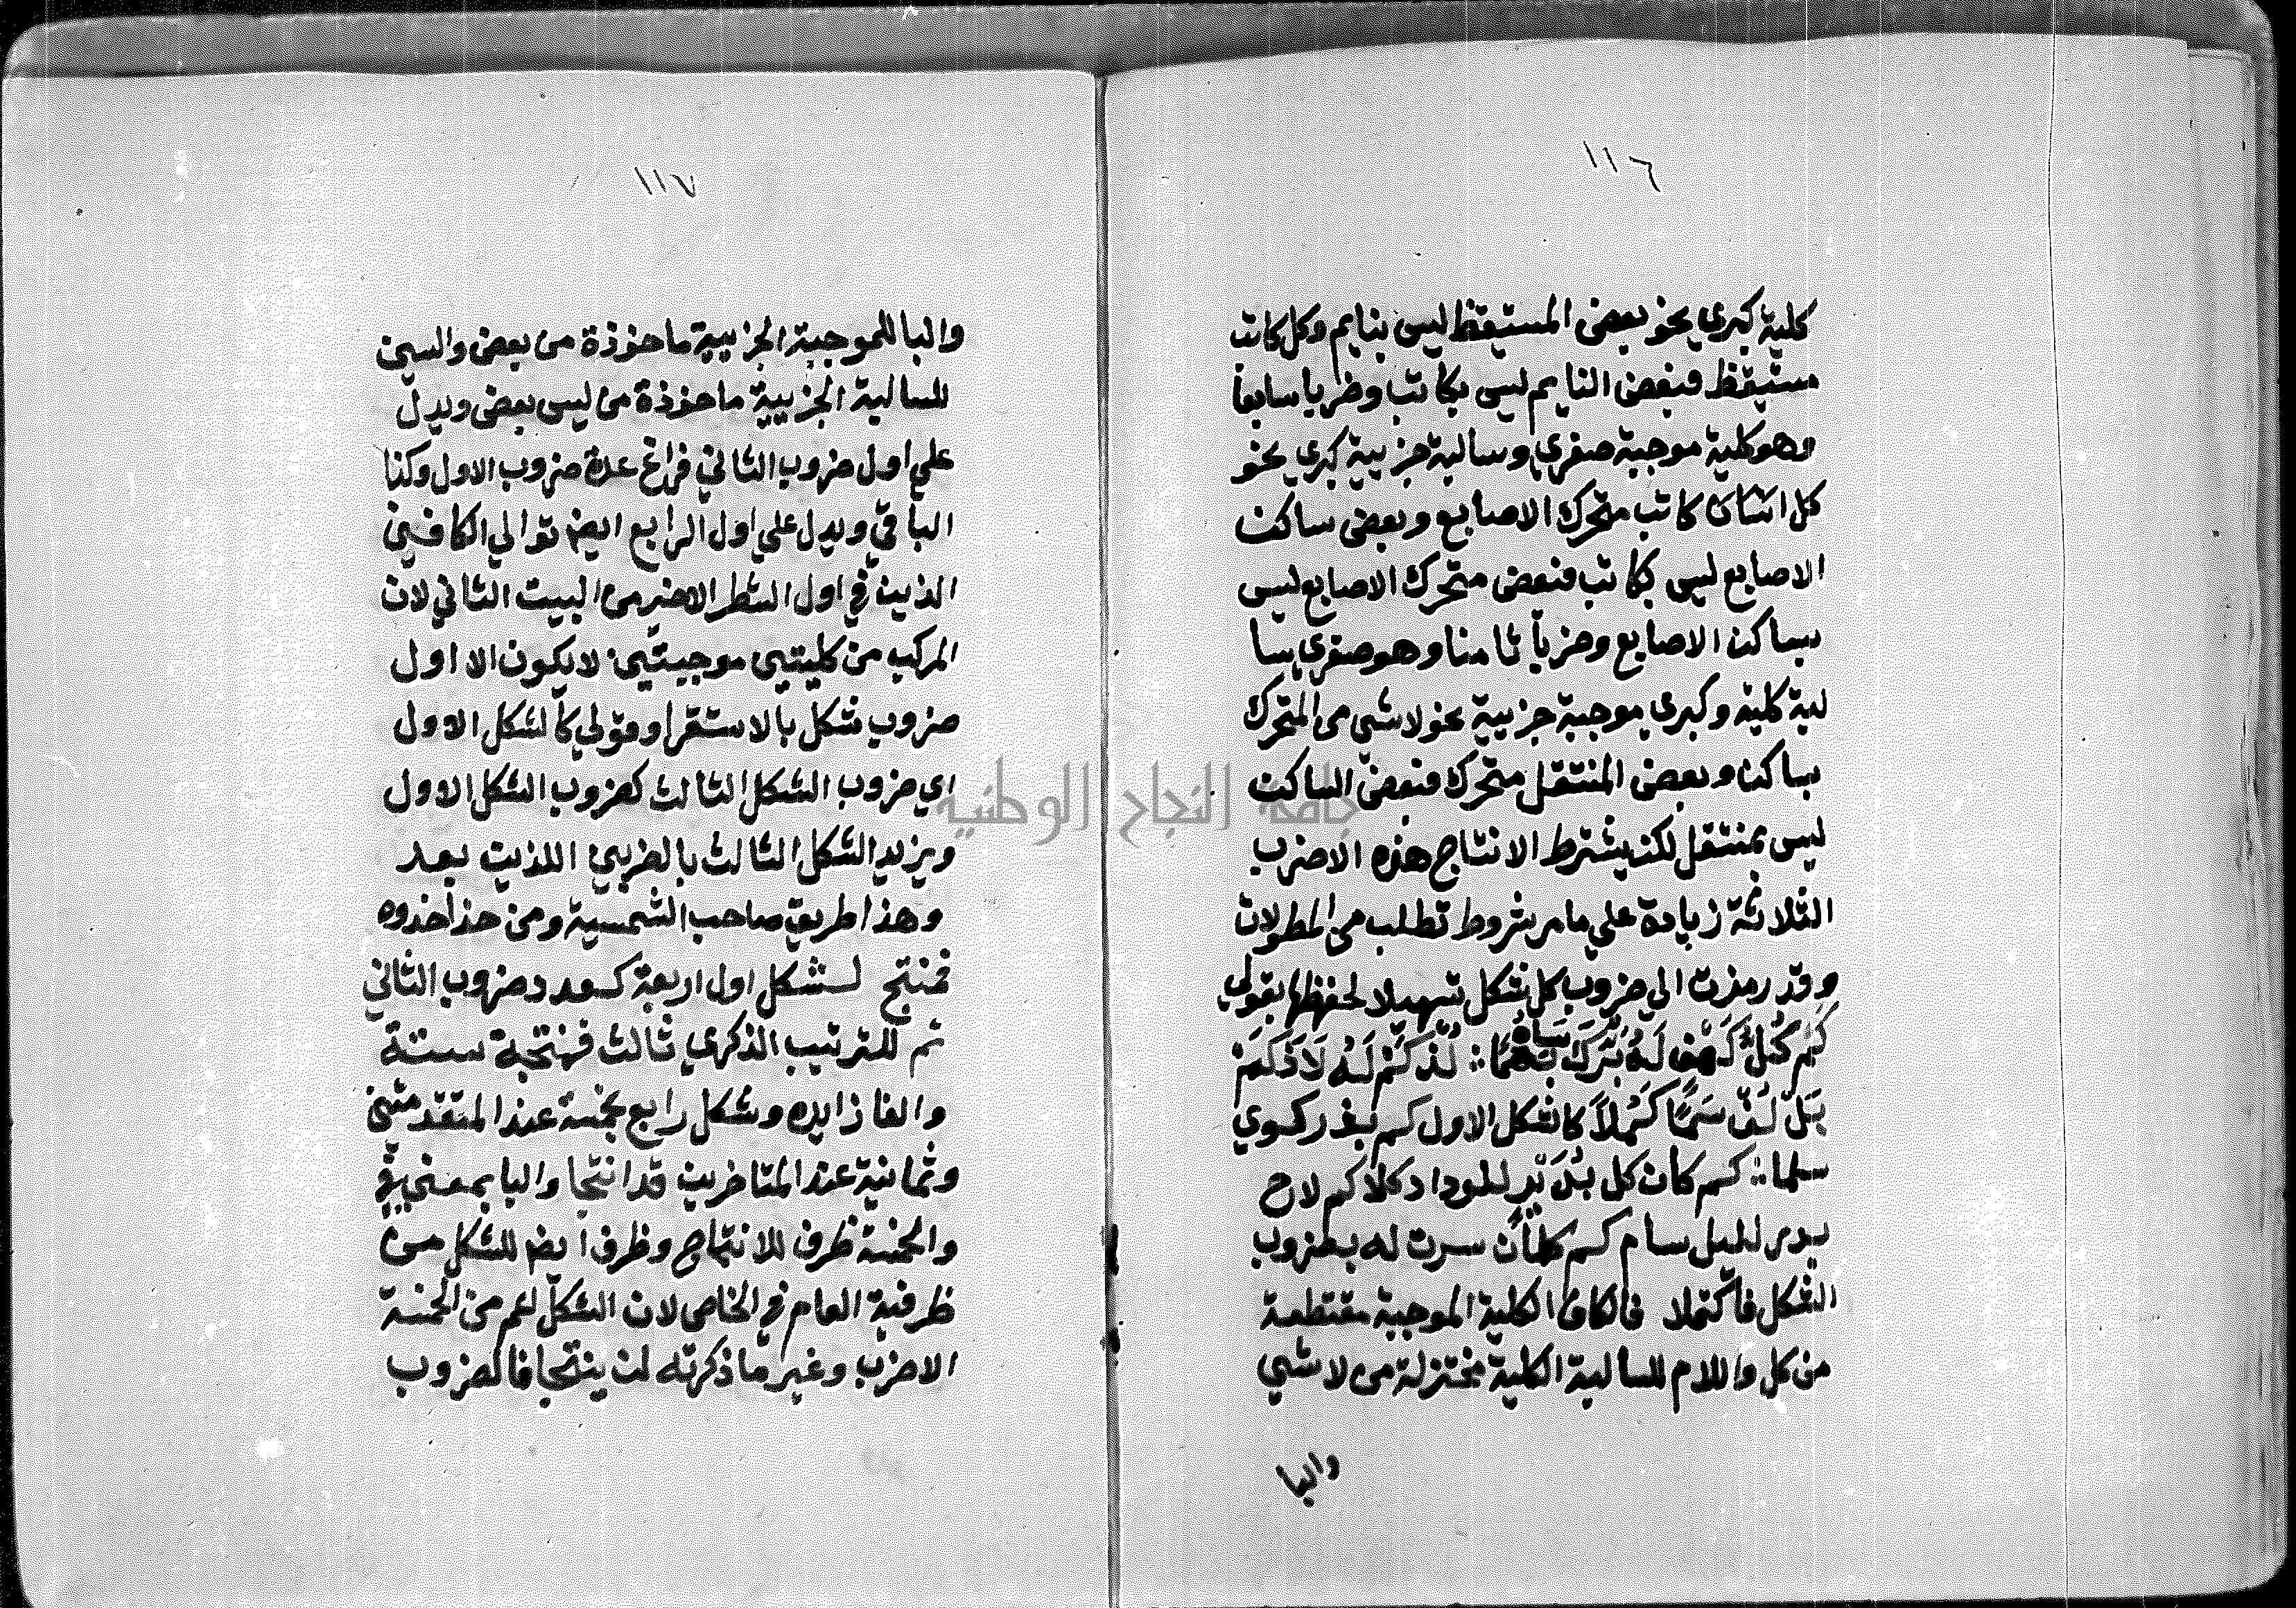 ١١٦
كلية كبري نحو بعض المستيقظ ليس بنايم وكل كاتب
مستيقظ فبعض النايم ليس بكاتب وضربا سابعا
وهو كلية موجبة صغري وسالبة جزيية كبري نحو
كل انسان كاتب متحرك الاصابع وبعض ساكن
الاصابع ليس بكاتب فبعض متحرك الاصابع ليس
بساكن الاصابع وضربا ثامنا وهو صغري سا
لبة كلية وكبري موجبة جزيية نحو لا شي من المتحرك
بساكن وبعض المنتقل متحرك فبعض الساكن
ليس بمنتقل لكن يشترط الانتاج هذه الاضرب
الثلاثة زيادة علي ما مر شروط تطلب من المطولات
وقد رمزت الي ضروب كل شكل تسهيلا لحفظها بقولي
كم كل كهف له
كملا كالشكل الاول كم
سلما كم كان كل للوداد كلا كم لاح
سام كم سرت له بضروب
الشكل فاكتملا فالكاف الكلية الموجبة مقتطعة
من كل واللام للسالبة الكلية مختزلة من لا شي
والبا
١١٧
والبا للموجبة الجزيية ماخوذة من بعض والسين
للسالبة الجزيية ماخوذة من ليس بعض ويدل
علي اول ضروب الثاني فراغ عدة ضروب الاول وكذا
الباقي ويدل علي اول الرابع ايضا توالي الكافين
الذين في اول الشطر الاخير من البيت الثاني لان
المركب من كليتين موجبتين لا يكون الا اول
ضروب شكل بالاستقرا وقولي كالشكل الاول
اي ضروب الشكل الثالث كضروب الشكل الاول
ويزيد الشكل الثالث بالضربين اللذين بعد
وهذا طريق صاحب الشمسية ومن حذا حذوه
فمنتج لشكل اول اربعة كعدد ضروب الثاني
ثم للترتيب الذكري ثالث فمنتجة ستة
والفا زايده وشكل رابع بخمسة عند المتقدمين
وثمانية عند المتاخرين قد انتجا والبا بمعني في
والخمسة ظرف للانتاج وظرف ايضا للشكل من
ظرفية العام في الخاص لان الشكل اعم من الخمسة
الاضرب وغير ما ذكرته لن ينتجا فالضروب